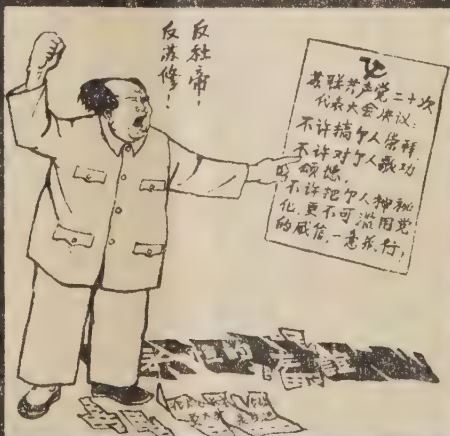 反社帝！
反苏修！
苏联共产党二十次
代表大会决议：
不许搞个人崇拜，
不许对个人歌功
颂德，
不许把个人神秘
化，更不可滥用党
的威信，一意孤行，